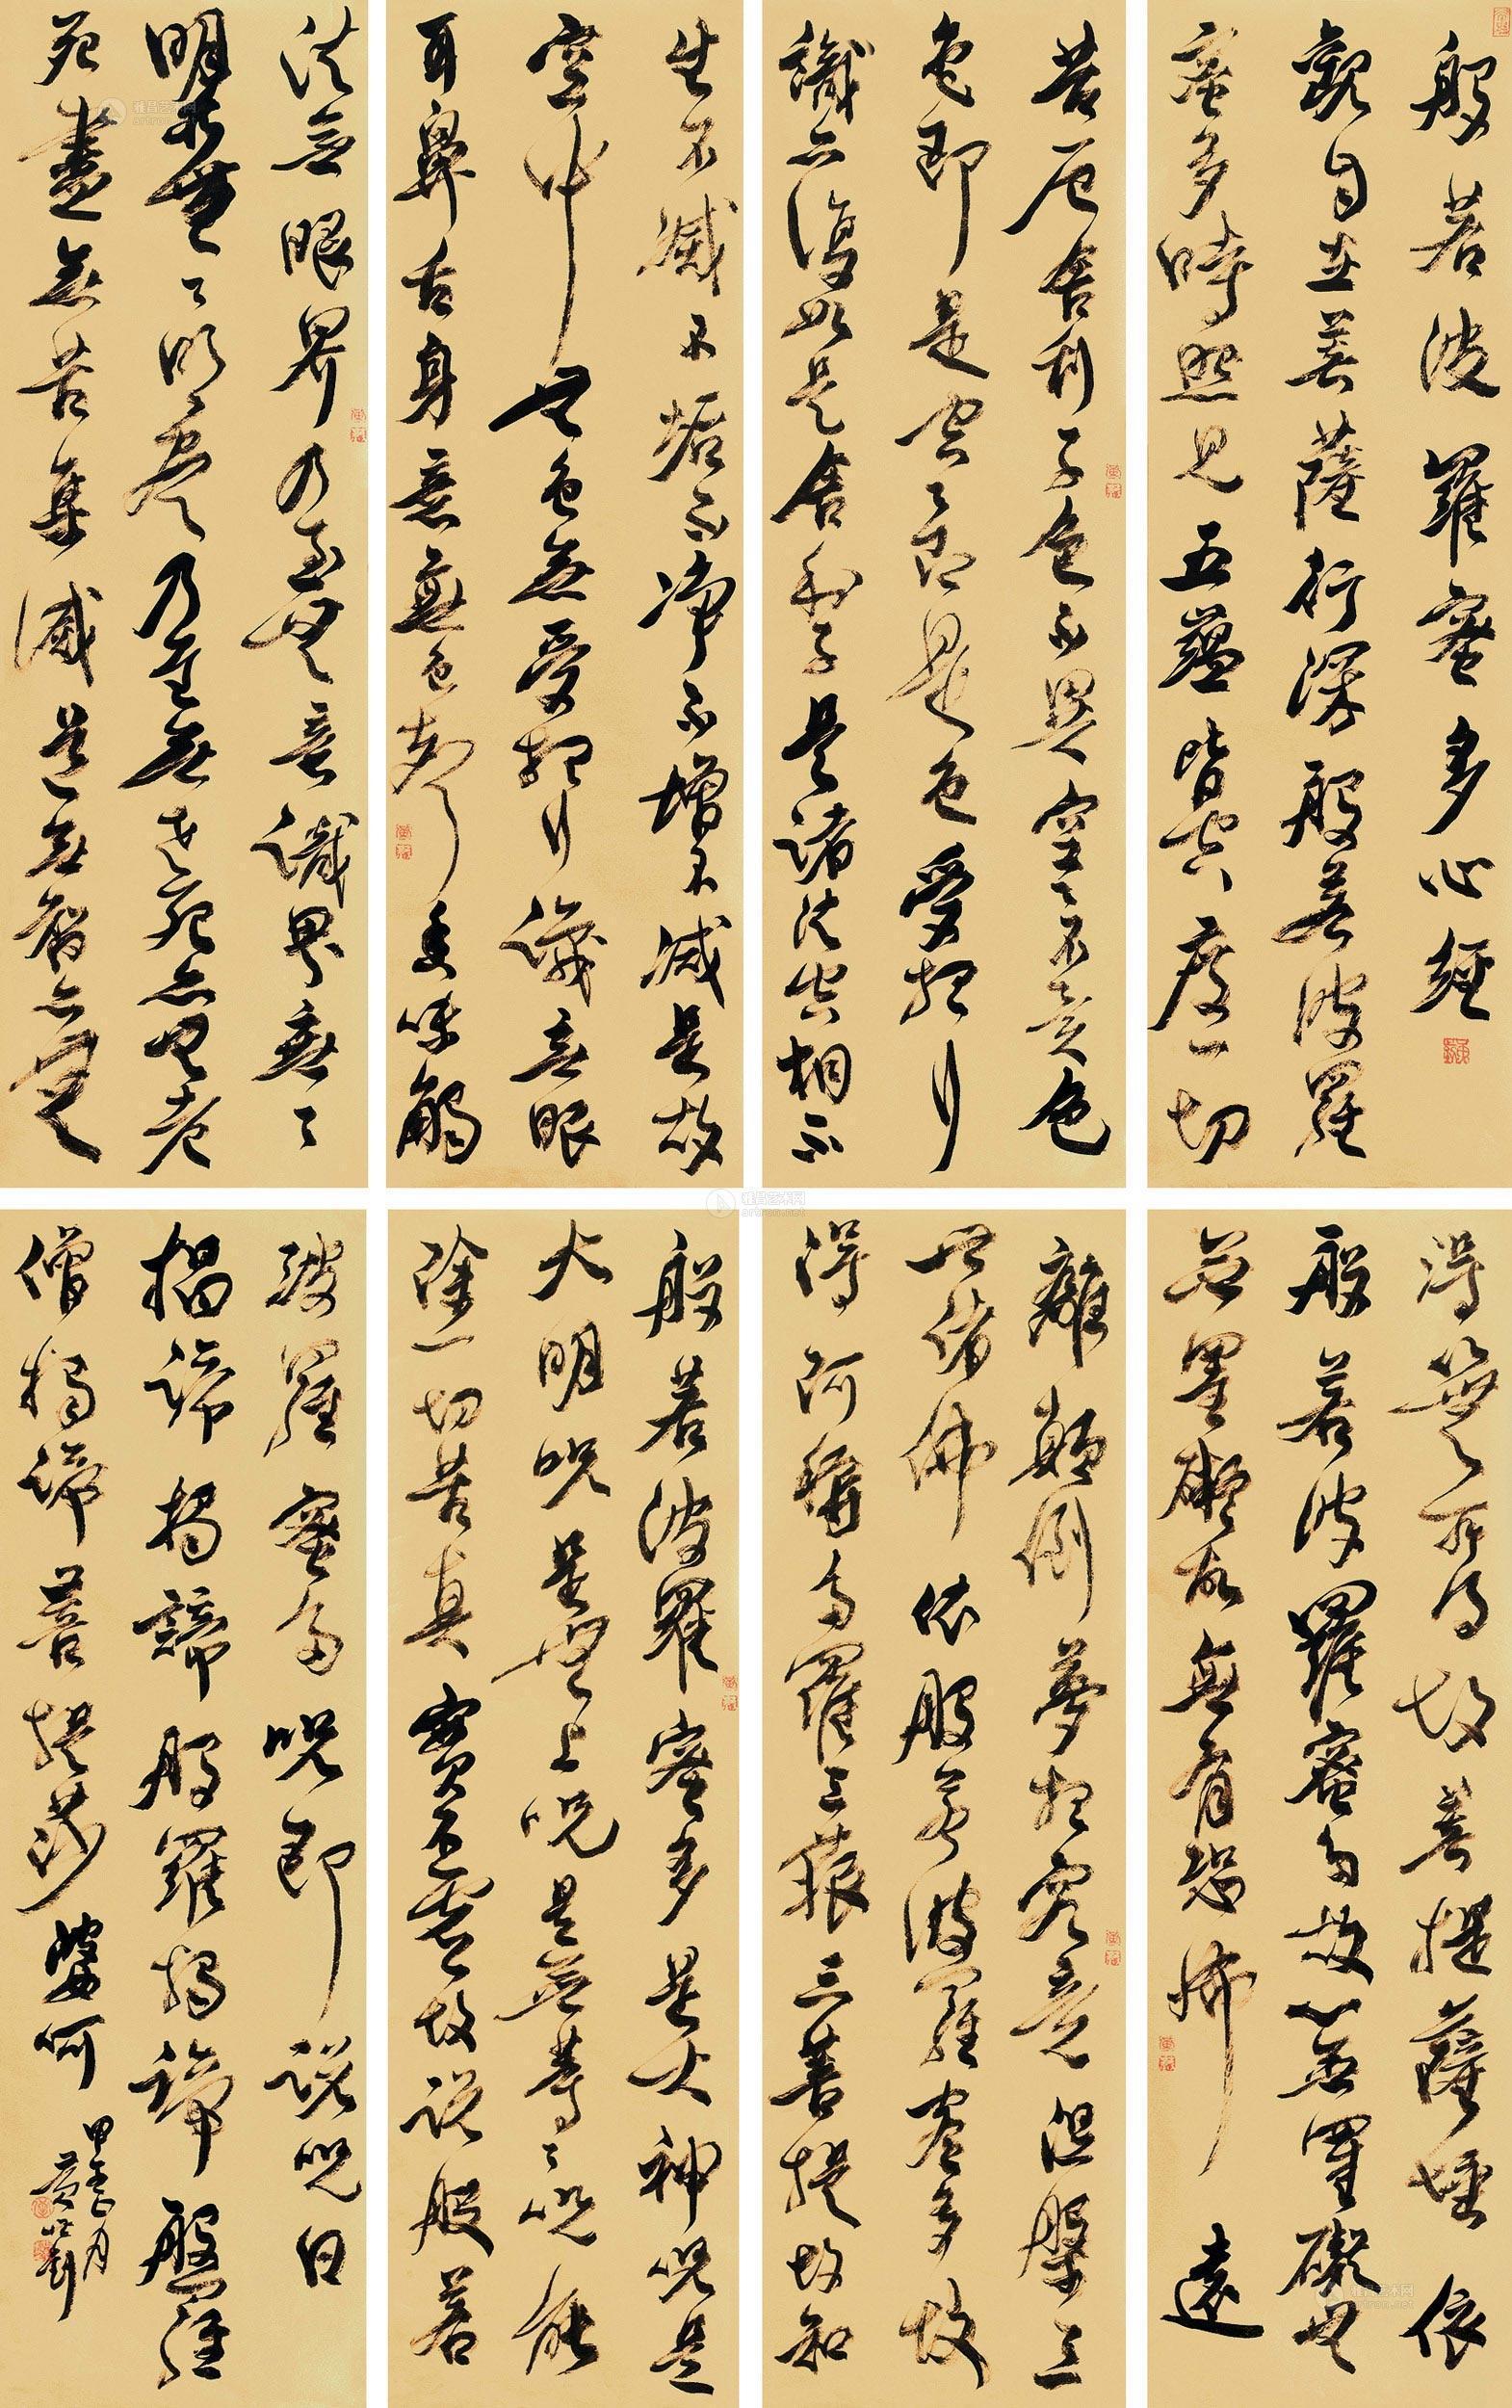 般若波羅蜜多心經
觀自在菩薩行深般若波羅
蜜多時照見五蘊皆空度一切
苦厄舍利子色不異空空不異色
色即是空空即是色受想行
識亦復如是舍利子是諸法空相不
生不滅不垢不淨不增不減是故
空中無色無受想行識無眼
耳鼻舌身意無色聲香味觸
法無眼界乃至無意識界無無
明亦無無明盡乃至無老死亦無老
死盡無苦集滅道無智亦無
得無所得故菩提薩埵依
般若波羅蜜多故心無罣礙無
無罣礙故無有恐怖遠
離顛倒夢想究竟涅槃三
世諸佛依般若波羅蜜多故
得阿耨多羅三藐三菩提故知
般若波羅蜜多是大神咒是
大明咒是無上咒是無等等咒能
除一切苦真實不虛故說般若
波羅蜜多咒即說咒曰
揭諦揭諦般羅揭諦般羅
僧揭諦菩提莎婆訶
雅昌艺术网
artron.net